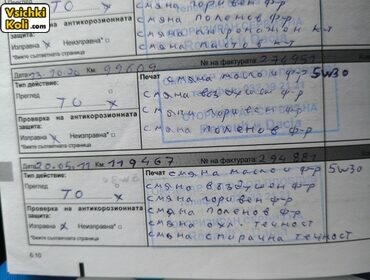 Vsichki
Koli.com
ТО Х
Проверка на антикорозионната
защита:
Изправна Х Неизправна*
*Вижте съответната страница
смяна горивен ф-р
смяна поленов ф-р
Км 99609
№ на фактурата 276951
Тип действие:
Преглед
ТО Х
Проверка на антикорозионната
защита:
Изправна Х Неизправна*
*Вижте съответната страница
Печат смяна масло и ф-р 5w30
смяна въздушен ф-р
смяна горивен ф-р
смяна поленов ф-р
Dacia
Дата 20.05.11 Км 119467
№ на фактурата 294881
Тип действие:
Преглед
ТО Х
Проверка на антикорозионната
защита:
Изправна Х Неизправна*
*Вижте съответната страница
Печат смяна масло и ф-р 5w30
смяна въздушен ф-р
смяна горивен ф-р
смяна поленов ф-р
смяна охл. течност
смяна спирачна течност
6.10